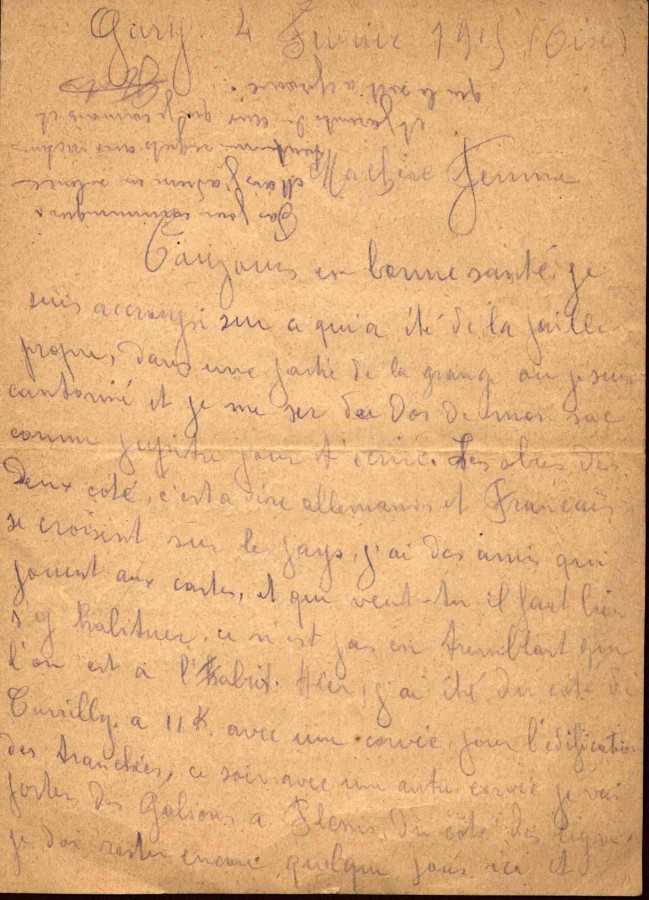 Gury 4 Fevrier 1915 (Oise)
Ma chère Femme
Toujours en bonne santé, je
suis accroupi sur ce qui a été de la paille
propre, dans une partie de la grange ou je suis
cantonné et je me ser du Dos de mon sac
comme pupitre pour t'écrire. Les obus des
Deux coté, c'est a dire allemands et Francais
se croisent sur le pays, j'ai des amis qui
jouent aux cartes, et que veut-tu il faut bien
s'y habituer, ce n'est pas en tremblant que
l'on est a l'habri. Hier, j'ai été du coté de
a 11 K. avec une corvée, pour l'édification
des tranchées, ce soir avec une autre corvée je vai
porter des Gabions a Plessis, du côté des lignes,
je doi rester encore quelque jours ici et
pas pour communiquer
Mais j'ai en silence
et parents de ceux que je connais et
que le sort a éprouvé.